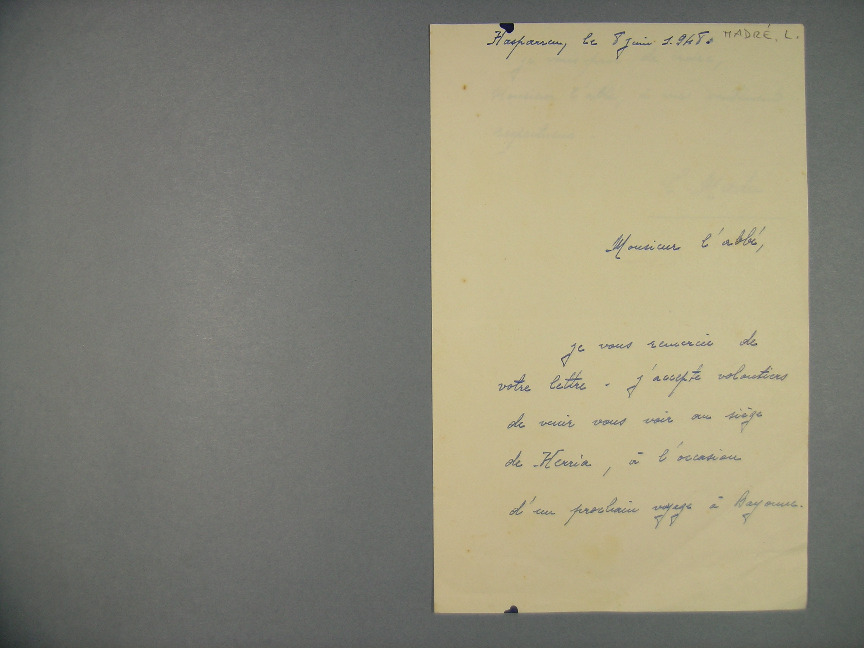 Hasparren, le 8 juin 1.948. MADRÉ. L.
Monsieur l'abbé,
je vous remercie de
votre lettre. j'accepte volontiers
de venir vous voir au siège
de Herria, à l'occasion
d'un prochain voyage à Bayonne.